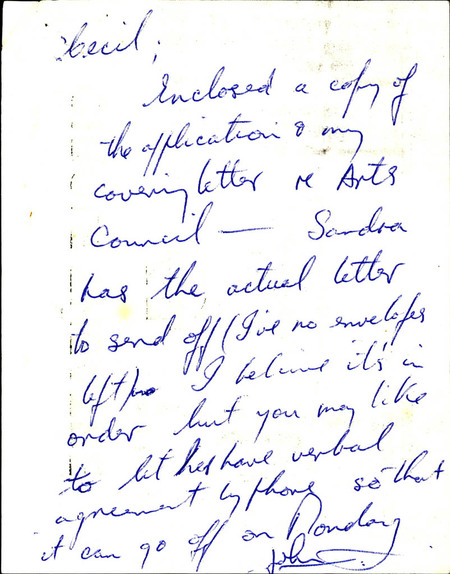 Cecil;
Enclosed a copy of
the application & my
covering letter re Arts
Council — Sandra
has the actual letter
to send off (I've no envelopes
left) I believe it's in
order but you may like
to let her have verbal
agreement by phone so that
it can go off on Monday
John